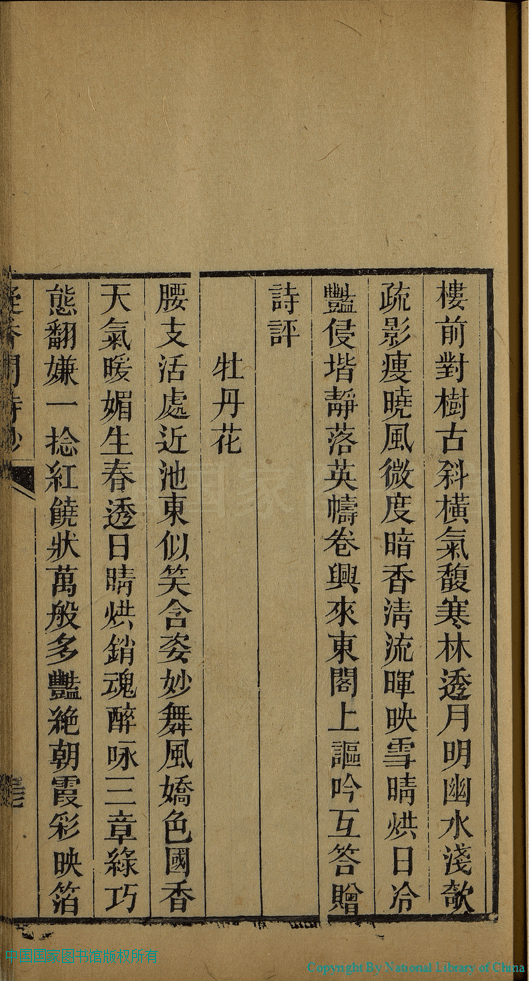 樓前對樹古斜橫氣馥寒林透月明幽水淺欹
疏影瘦曉風微度暗香淸流暉映雪晴烘日冷
豔侵堦靜落英幬卷興來東閣上謳吟互答贈
詩評
牡丹花
腰支活處近池東似笑含姿妙舞風嬌色國香
天氣暖媚生春透日晴烘銷魂醉咏三章綠巧
態翻嫌一捻紅饒狀萬般多豔絕朝霞彩映箔
香閣詩鈔
中国国家图书馆版权所有
Copyright By National Library of China